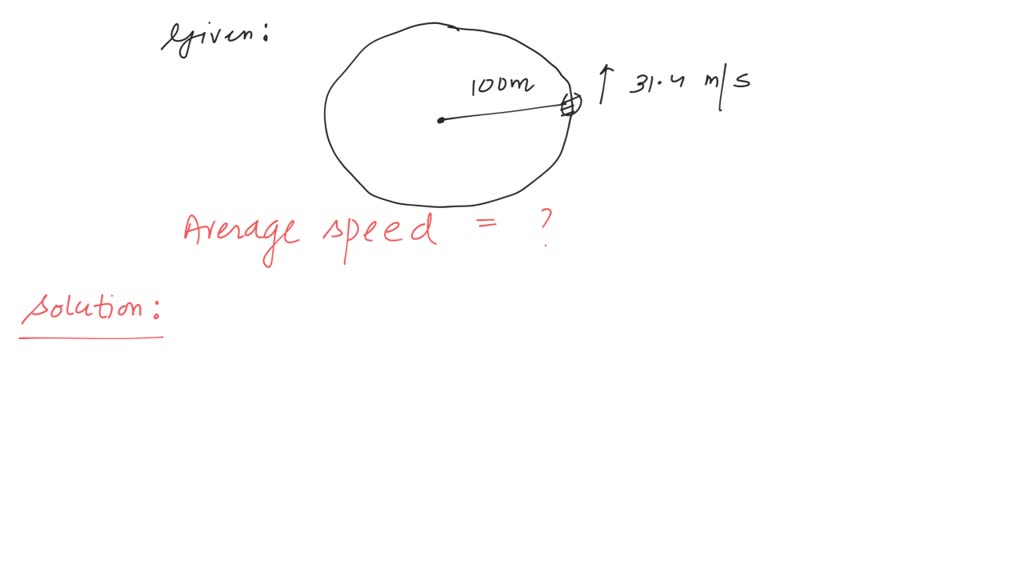 Given:
100m
↑ 31.4 m/s
Average speed = ?
Solution: